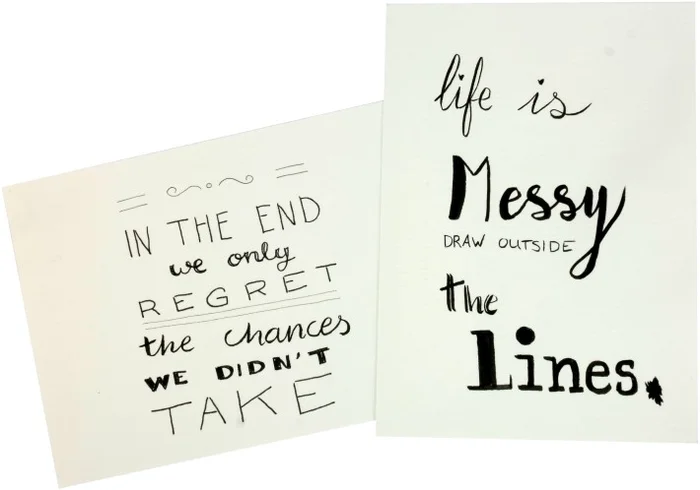 IN THE END
we only
REGRET
the chances
WE DIDN'T
TAKE
life is
Messy
DRAW OUTSIDE
the
Lines.